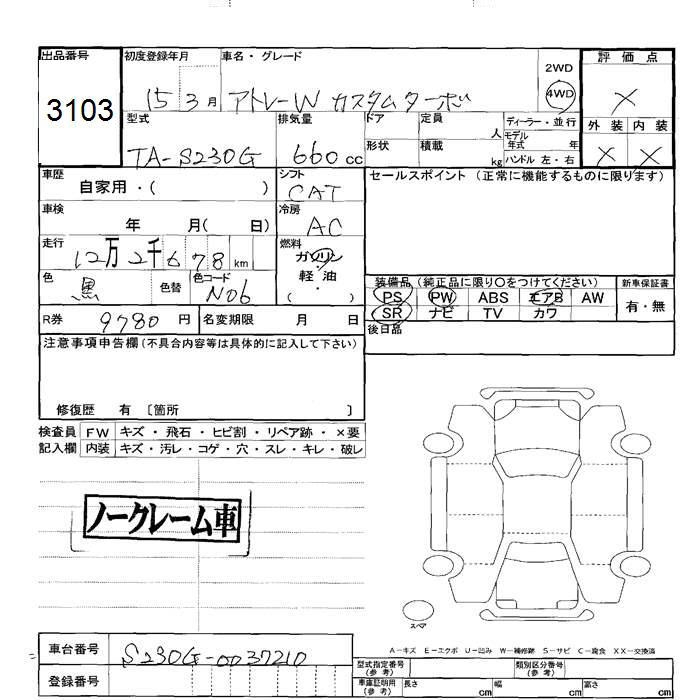 出品番号
3103
初度登録年月
15 3月
車名・グレード
アトレーW カスタムターボ
2WD
4WD
評価点
×
外装 内装
× ×
型式
TA-S230G
排気量
660cc
ドア
定員 人
形状
積載 kg
ディーラー・並行
モデル年式 年
ハンドル 左・右
車歴
自家用・( )
シフト
CAT
セールスポイント(正常に機能するものに限ります)
車検
年 月( 日)
冷房
AC
走行
12万2千678km
燃料
ガソリン・軽油・( )
色
黒
色替
色コード
N06
装備品(純正品に限り〇をつけてください)
PS PW ABS エアB AW
SR ナビ TV カワ
新車保証書
有・無
R券 9780円
名変期限 月 日
後日品
注意事項申告欄(不具合内容等は具体的に記入して下さい)
修復歴 有 〔箇所 〕
検査員記入欄
FW キズ・飛石・ヒビ割・リペア跡・×要
内装 キズ・汚レ・コゲ・穴・スレ・キレ・破レ
ノークレーム車
スペア
A-キズ E-エクボ U-凹み W-補修跡 S-サビ C-腐食 XX-交換済
車台番号
S230G-0037210
登録番号
型式指定番号(参考)
類別区分番号(参考)
車庫証明用(参考) 長さ cm 幅 cm 高さ cm